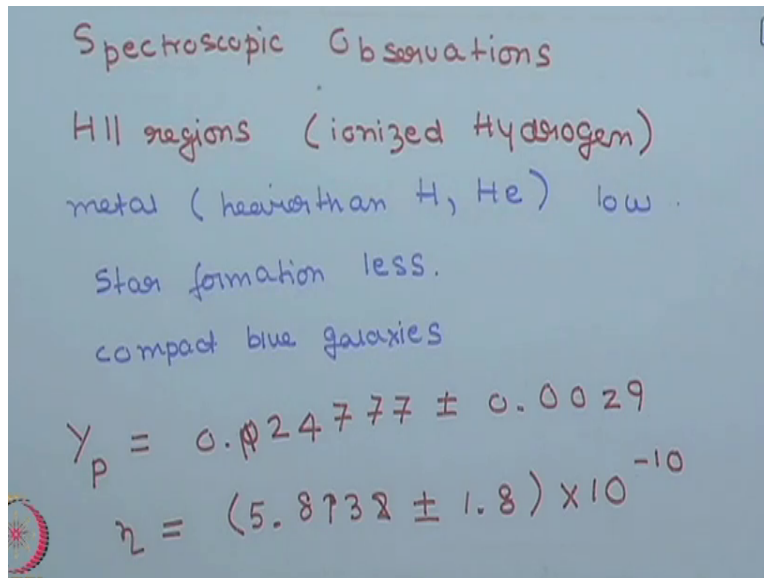 Spectroscopic Observations
HII regions (ionized Hydrogen)
metal (heavier than H, He) low.
Star formation less.
compact blue galaxies
Yp = 0.24777 ± 0.0029
η = (5.8 ± 1.8) × 10⁻¹⁰